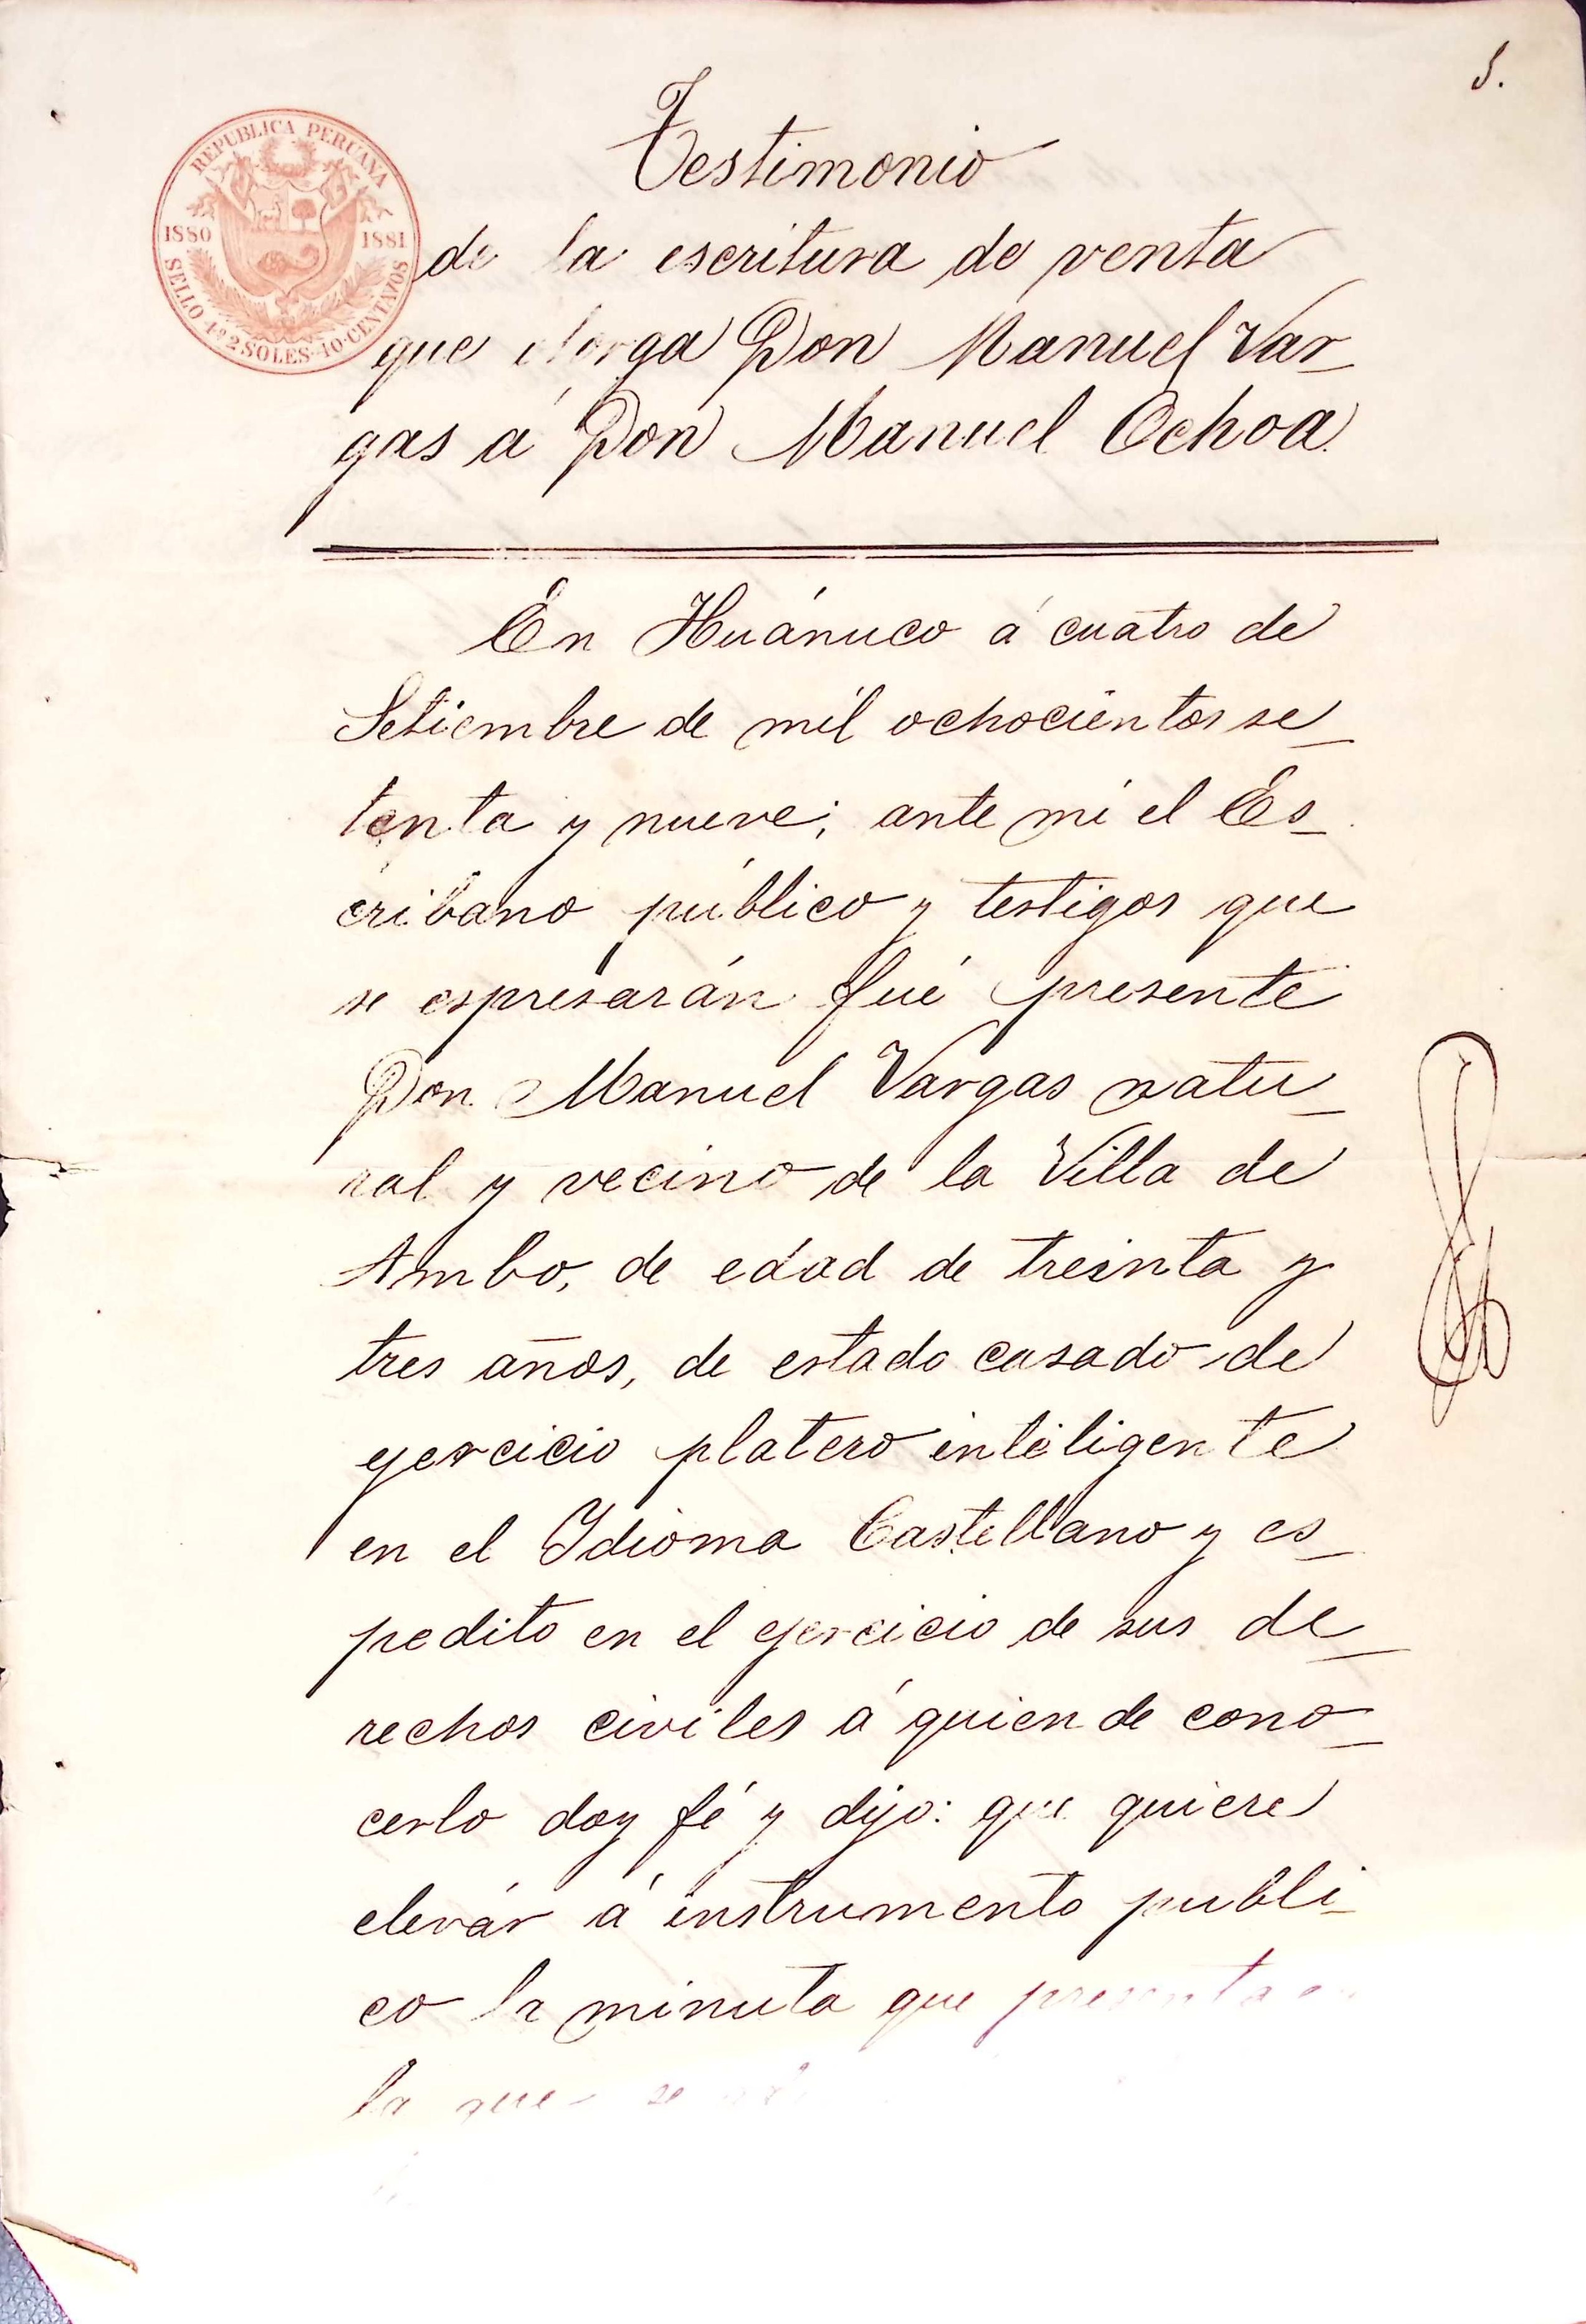 5.
REPUBLICA PERUANA
1880 1881
SELLO 4º 2 SOLES 10 CENTAVOS
Testimonio
de la escritura de venta
que otorga Don Manuel Var_
gas á Don Manuel Ochoa.
En Huánuco á cuatro de
Setiembre de mil ochocientos se_
tenta y nueve; ante mí el Es_
cribano público y testigos que
se espresarán fué presente
Don Manuel Vargas natu_
ral y vecino de la Villa de
Ambo, de edad de treinta y
tres años, de estado casado de
ejercicio platero inteligente
en el Idioma Castellano y es_
pedito en el ejercicio de sus de_
rechos civiles á quien de cono_
cerlo doy fé y dijo: que quiere
elevár á instrumento publi_
co la minuta que presenta
la que se